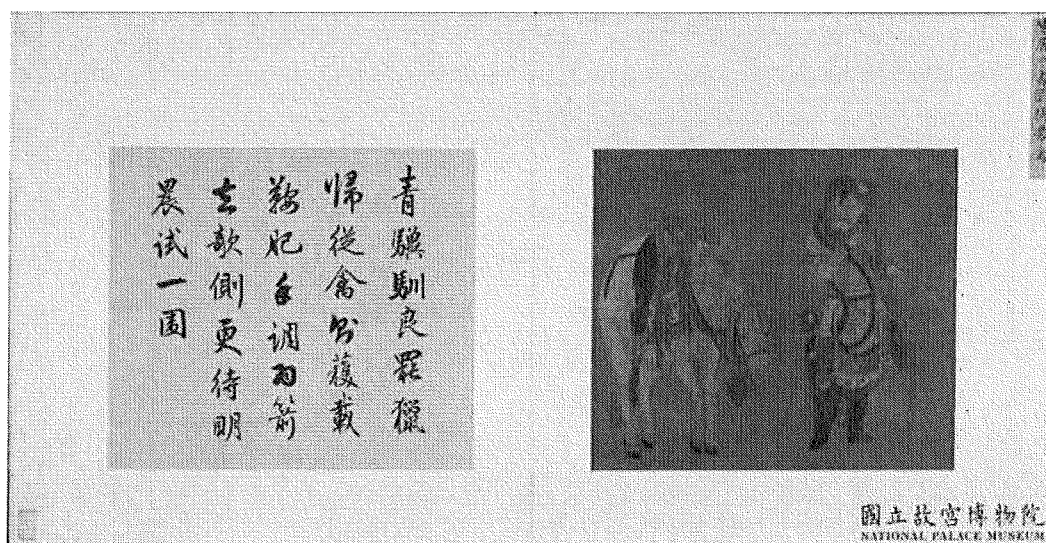 青驥馴良罷獵
歸從禽多獲載
鞍肥手調羽箭
去欹側更待明
晨試一圍
國立故宮博物院
NATIONAL PALACE MUSEUM